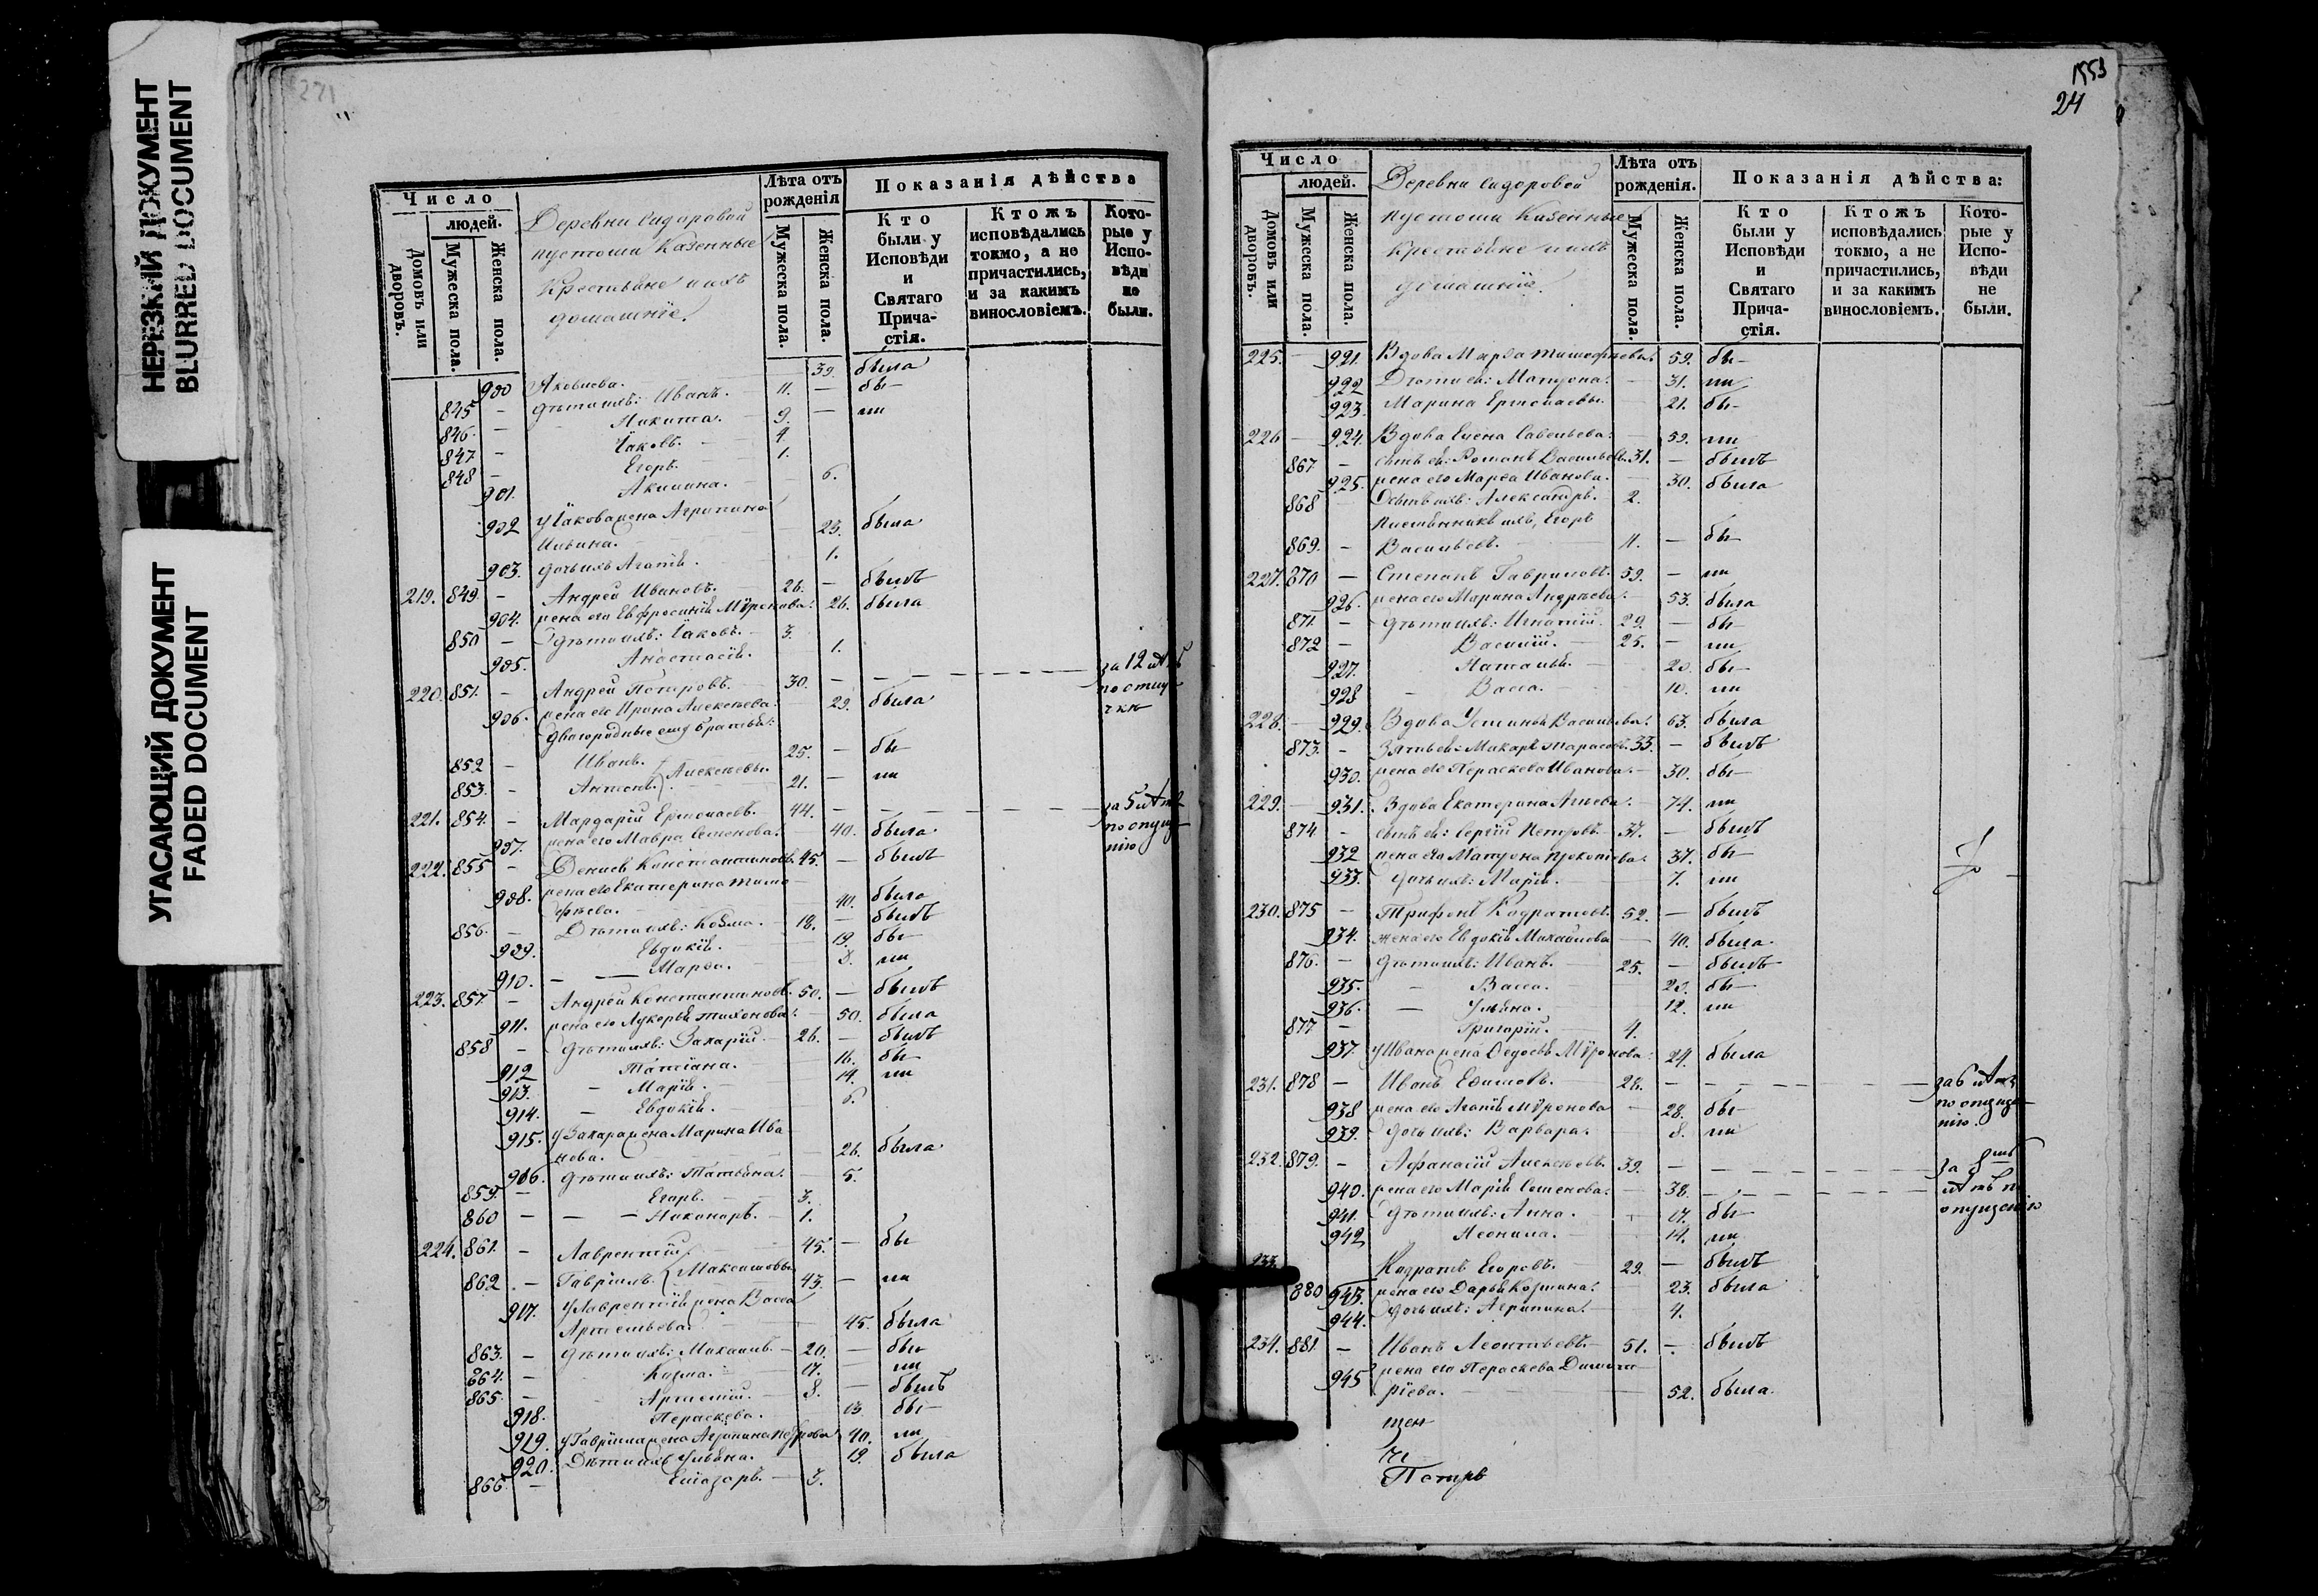 НЕРЕЗКИЙ ДОКУМЕНТ
BLURRED DOCUMENT
УГАСАЮЩИЙ ДОКУМЕНТ
FADED DOCUMENT
271
Число
людей.
Домовъ или дворовъ.
Мужеска пола.
Женска пола.
Деревни Сидоровой
пустоши Казенные
Крестьяне и ихъ
домашніе.
Лѣта отъ рожденія
Мужеска пола.
Женска пола.
Показанія дѣйства
Кто были у Исповѣди и Святаго Прича-стія.
Ктожъ исповѣдались токмо, а не причастились, и за какимъ винословіемъ.
Кото-рые у Испо-вѣди не были.
900 Яковлева. 39. была
845 – дѣти ихъ: Иванъ. 11. – бы–
846. – Никита. 9. – ли
847 – Іаковъ. 4.
848 – Егоръ. 1.
901. Акилина. 6.
902 У Іакова жена Агрипина
Ильина. 23. была
903. дочь ихъ Агапія. 1.
219. 849. – Андрей Ивановъ. 26. – былъ
904. жена его Евфросинія Мѵронова. 26. была
850 – дѣти ихъ: Іаковъ. 3.
905. Анастасія. 1.
220. 851. – Андрей Петровъ. 30. – за 12 лѣтъ
906. жена его Ирина Алексѣева. 29. была
двоюродные ему братья:
852 – Иванъ. 25. – бы
853. – Антонъ. Алексѣевы. 21. – ли
221. 854. – Мардарій Ермолаевъ. 44. – за 5 лѣтъ
907. жена его Мавра Семенова. 40. была по опуще
нію
222. 855 – Денисъ Константиновъ. 45. – былъ
908. жена его Екатерина Тимо
фѣева. 40. была
856. – Дѣти ихъ: Козма. 18. – былъ
909. Евдокія. 19. бы
910. – Марѳа. 8. ли
223. 857. – Андрей Константиновъ. 50. – былъ
911. жена его Лукерья Тихонова. 50. была
858 – дѣти ихъ: Захарій. 26. – былъ
912 Татіана. 16. бы
913. – Марія. 14. ли
914. – Евдокія. 6.
915. У Захара жена Марина Ива
нова. 26. была
916. дѣти ихъ: Татьяна. 5.
859. – Егоръ. 3.
860 – – Никаноръ. 1.
224. 861. – Лаврентій. 45. – бы
862. – Гавріилъ. Максимовы. 43. – ли
917. У Лаврентія жена Васса
Артемьева. 45. была
863. – дѣти ихъ: Михаилъ. 20. – бы
864. – Козма. 17. – ли
865. – Артемій. 8. – былъ
918. Параскева. 13. бы–
919. У Гавріила жена Агрипина Петрова 40. ли
920. Дѣти ихъ Ульяна. 19. была
866. – Елиазаръ. 3.
1553
24
Число
людей.
Домовъ или дворовъ.
Мужеска пола.
Женска пола.
Деревни Сидоровой
пустоши Казенные
Крестьяне и ихъ
домашніе.
Лѣта отъ рожденія.
Мужеска пола.
Женска пола.
Показанія дѣйства:
Кто были у Исповѣди и Святаго Прича-стія.
Ктожъ исповѣдались токмо, а не причастились, и за какимъ винословіемъ.
Кото-рые у Испо-вѣди не были.
225. – 921. Вдова Марѳа Тимофѣева. 59. бы–
922 Дѣти ея: Матрона. 31. ли
923. Марина Ермолаевы. 21. бы–
226 – 924. Вдова Елена Савельева. 59. ли
867. – сынъ ея: Романъ Васильевъ. 31. – былъ
925. жена его Марѳа Иванова. 30. была
868 Сынъ ихъ: Александръ. 2.
племянникъ ихъ, Егоръ
869. – Васильевъ. 11. – бы–
227. 870 – Степанъ Гавриловъ. 59. – ли
926. жена его Марина Андрѣева. 53. была
871. – дѣти ихъ: Игнатій. 29. – бы–
872 – Василій. 25. – ли
927. Наталья. 20. бы–
928 – Васса. 10. ли
228. – 929. Вдова Устинья Васильева. 63. была
873. – Зять ея: Макаръ Тарасовъ. 33. – былъ
930. жена его Параскева Иванова. 30. бы–
229. – 931. Вдова Екатерина Агѣева. 74. ли
874 – сынъ ея: Сергій Петровъ. 37. – былъ
932 жена его Матрона Прокопіева. 37. бы–
933. дочь ихъ: Марія. 7. ли
230. 875 – Трифонъ Кодратовъ. 52. – былъ
934. жена его Евдокія Михайлова 40. была
876. – дѣти ихъ: Иванъ. 25. – былъ
935. – Васса. 20. бы–
936. – Ульяна. 12. ли
877 – Григорій. 4.
937. У Ивана жена Ѳедосья Мѵронова. 24. была
231. 878 – Иванъ Ефимовъ. 28. – за 6 лѣтъ
938 жена его Агапія Мѵронова 28. бы– по опуще
939. дочь ихъ: Варвара. 8. ли нію.
232. 879. – Афанасій Алексѣевъ. 39. – за 8мь
940. жена его Марія Семенова. 38. – лѣтъ по
941. дѣти ихъ: Анна. 17. бы– опущенію
942 Леонила. 14. ли
233. Кодратъ Егоровъ. 29. – былъ
880 943. жена его Дарья Козмина. 23. была
944. дочь ихъ: Агрипина. 4.
234. 881. – Иванъ Леонтьевъ. 51. – былъ
945 жена его Параскева Димит
ріева. 52. была.
Петръ